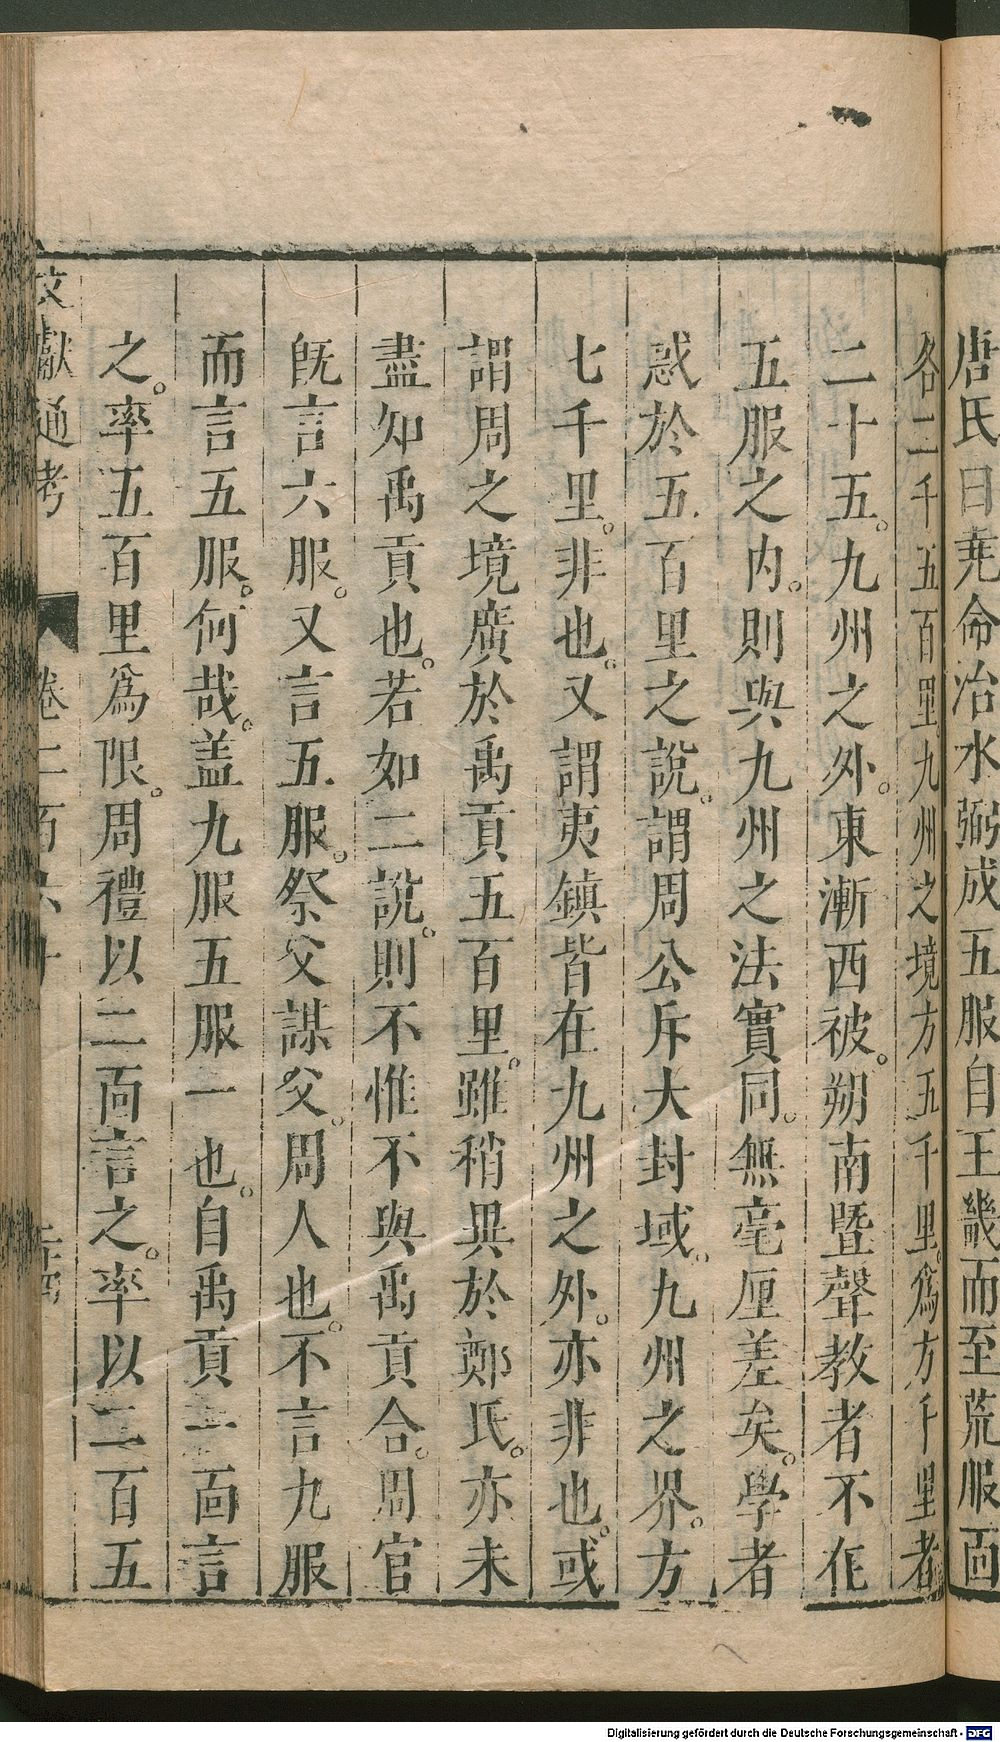 唐氏曰堯命治水弼成五服自王畿而至荒服面
各二千五百里九州之境方五千里。爲方千里者
二十五。九州之外。東漸西被。朔南曁聲教者不在
五服之內。則與九州之法實同。無毫厘差矣。學者
惑於五百里之說。謂周公斥大封域。九州之界。方
七千里。非也。又謂夷鎮皆在九州之外。亦非也。或
謂周之境廣於禹貢五百里。雖稍異於鄭氏。亦未
盡知禹貢也。若如二說。則不惟不與禹貢合。周官
旣言六服。又言五服。祭父謀父。周人也。不言九服
而言五服。何哉。盖九服五服一也。自禹貢一面言
之。率五百里爲限。周禮以二面言之。率以二百五
文獻通考 卷二百六十
Digitalisierung gefördert durch die Deutsche Forschungsgemeinschaft - DFG